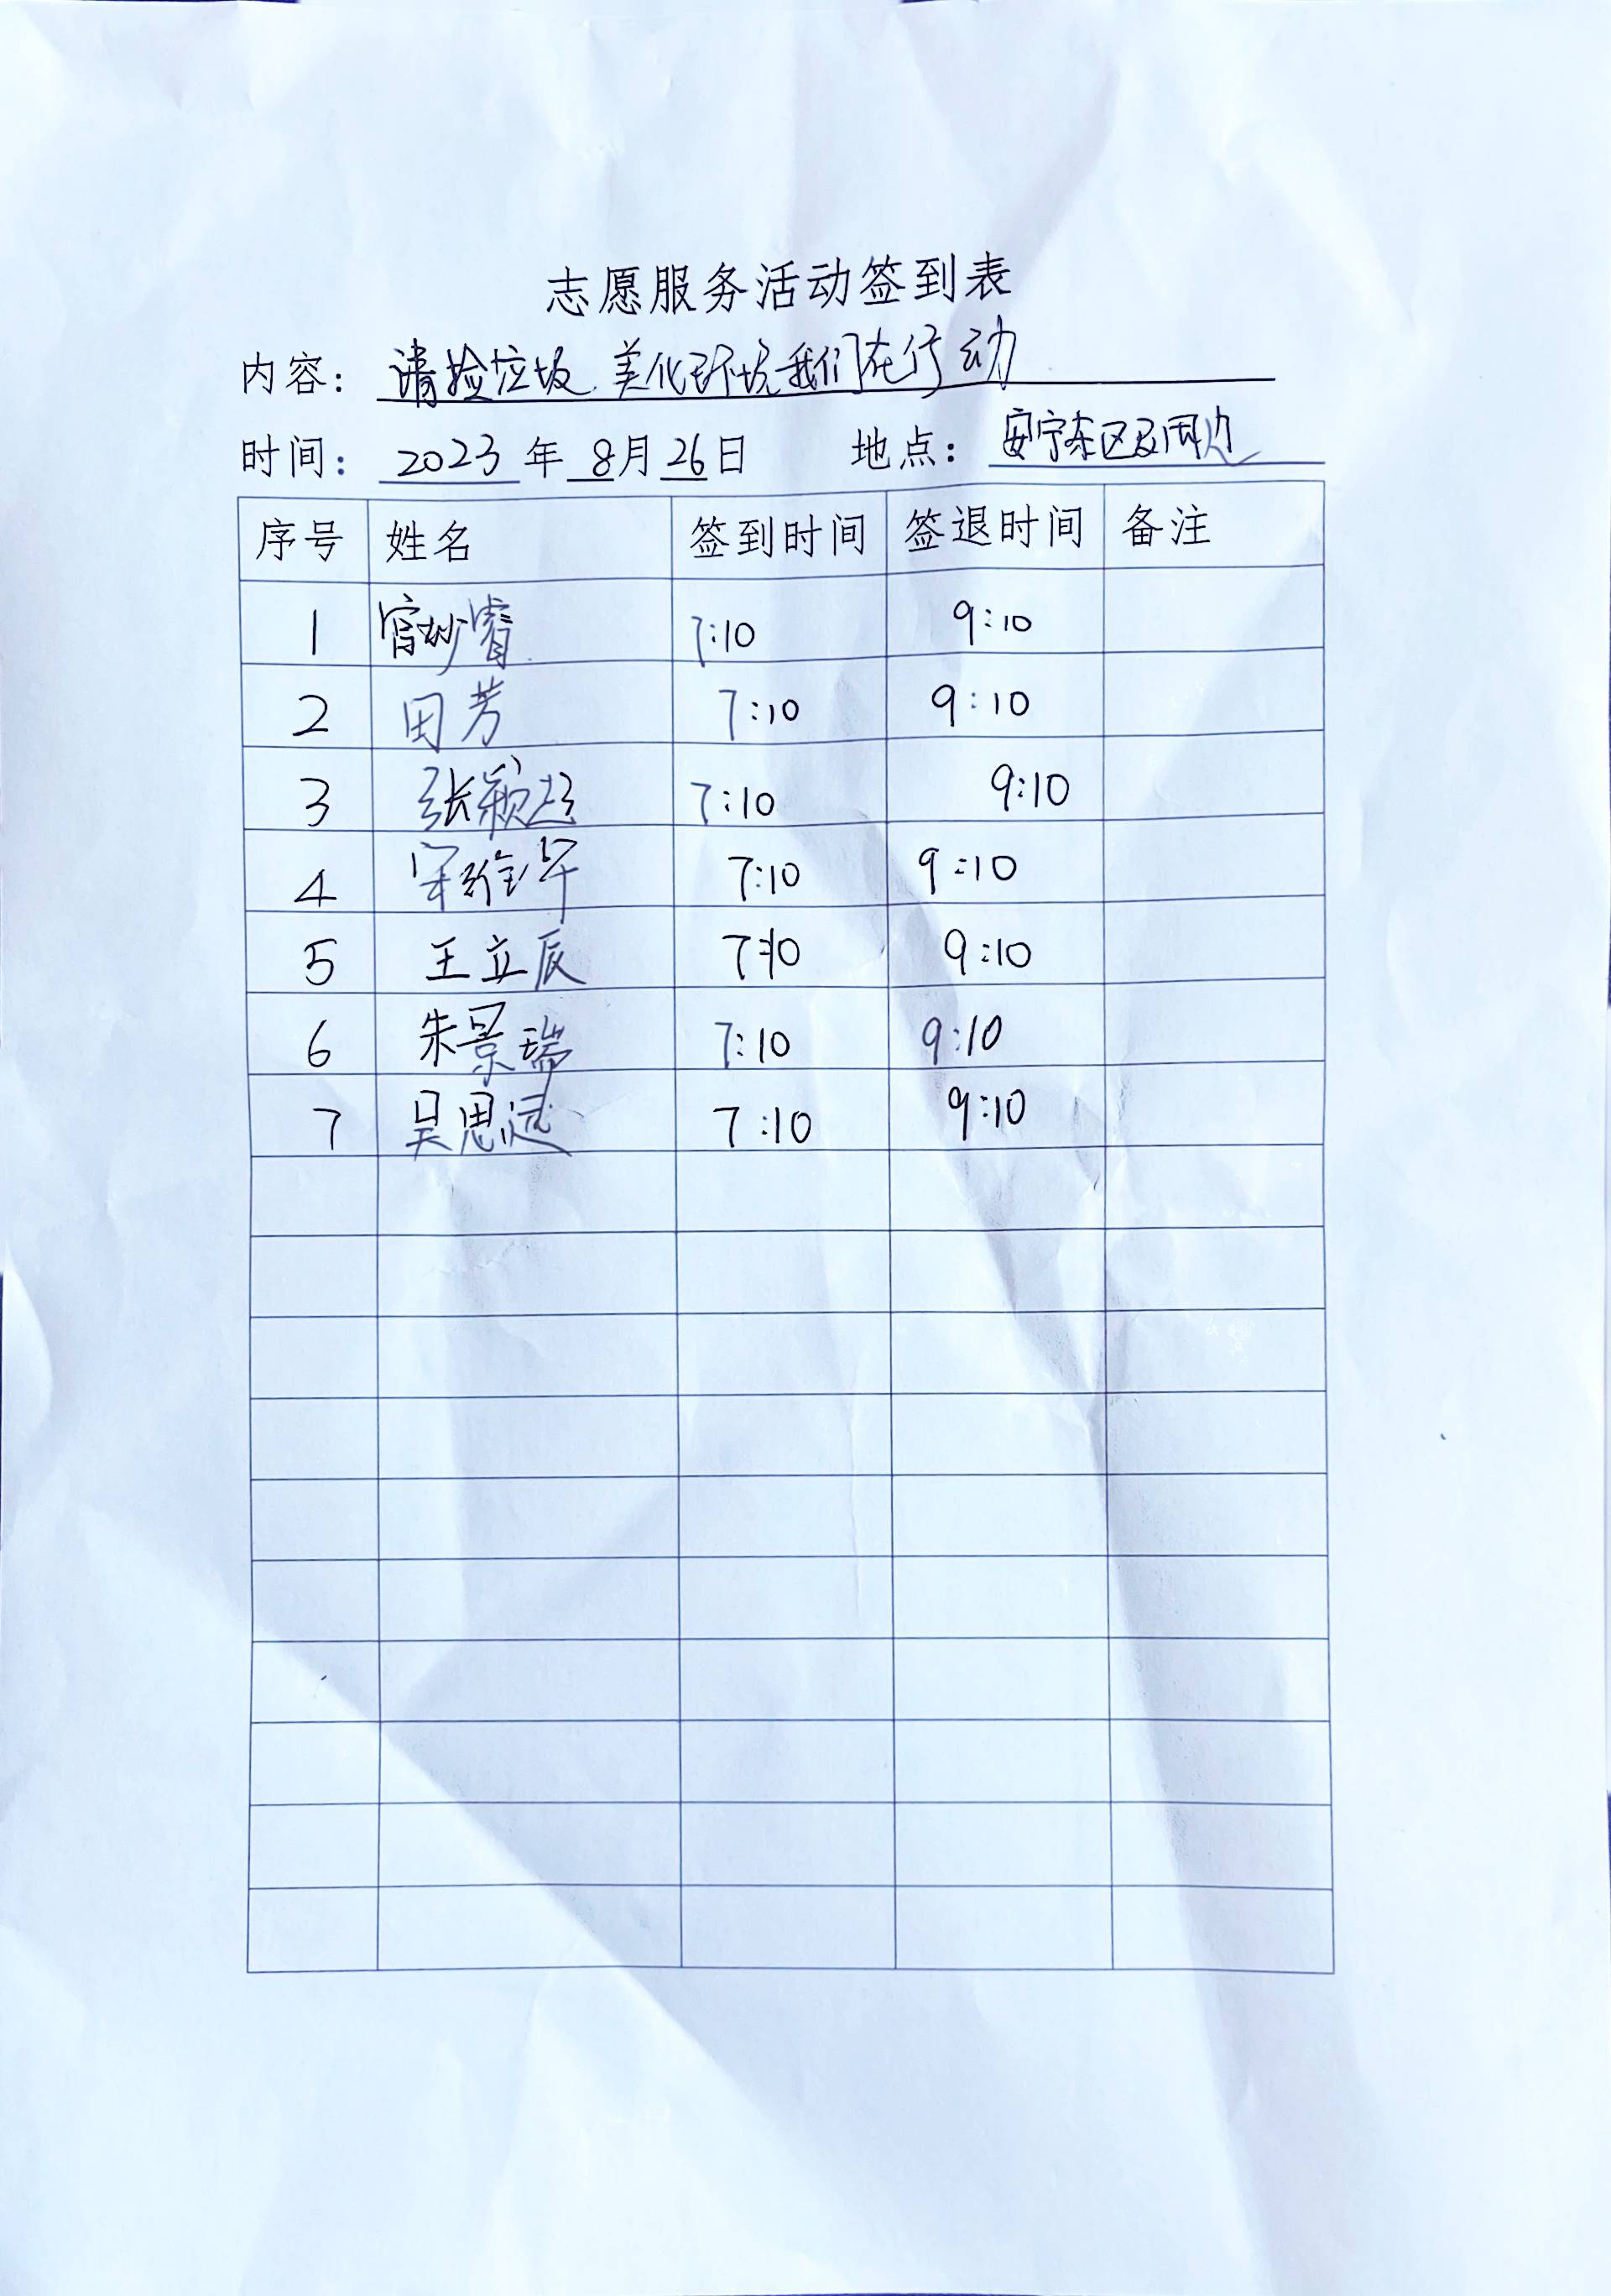 志愿服务活动签到表
内容： 清捡垃圾 美化环境我们在行动
时间： 2023 年 8月 26日 地点： 安宁东区及周边
序号 姓名 签到时间 签退时间 备注
1 宫妙睿 7:10 9:10
2 田芳 7:10 9:10
3 张颖 7:10 9:10
4 宋 7:10 9:10
5 王立辰 7:10 9:10
6 朱景瑞 7:10 9:10
7 吴思 7:10 9:10